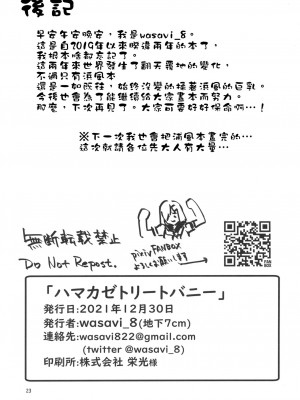 後記
早安午安晚安，我是wasavi_8。
這是自2019年以來睽違兩年的本了，
我根本啥都忘記了。
這兩年來世界發生了翻天覆地的變化，
不過只有浜風本
還是一如既往，始終沒變的揉著浜風的巨乳。
今後也會為了能繼續給大家畫本而努力。
那麼，下次再見了。大家可要好好保命啊…！
※下一次我也會把浦風本畫完的…
這次就請各位先大人有大量…
無断転載禁止
Do Not Repost.
pixiv FANBOX
よろしくお願いします
FAN
BOX
「ハマカゼトリートバニー」
発行日:2021年12月30日
発行者:wasavi_8(地下7cm)
連絡先:wasavi822@gmail.com
(twitter @wasavi_8)
印刷所:株式会社 栄光様
23